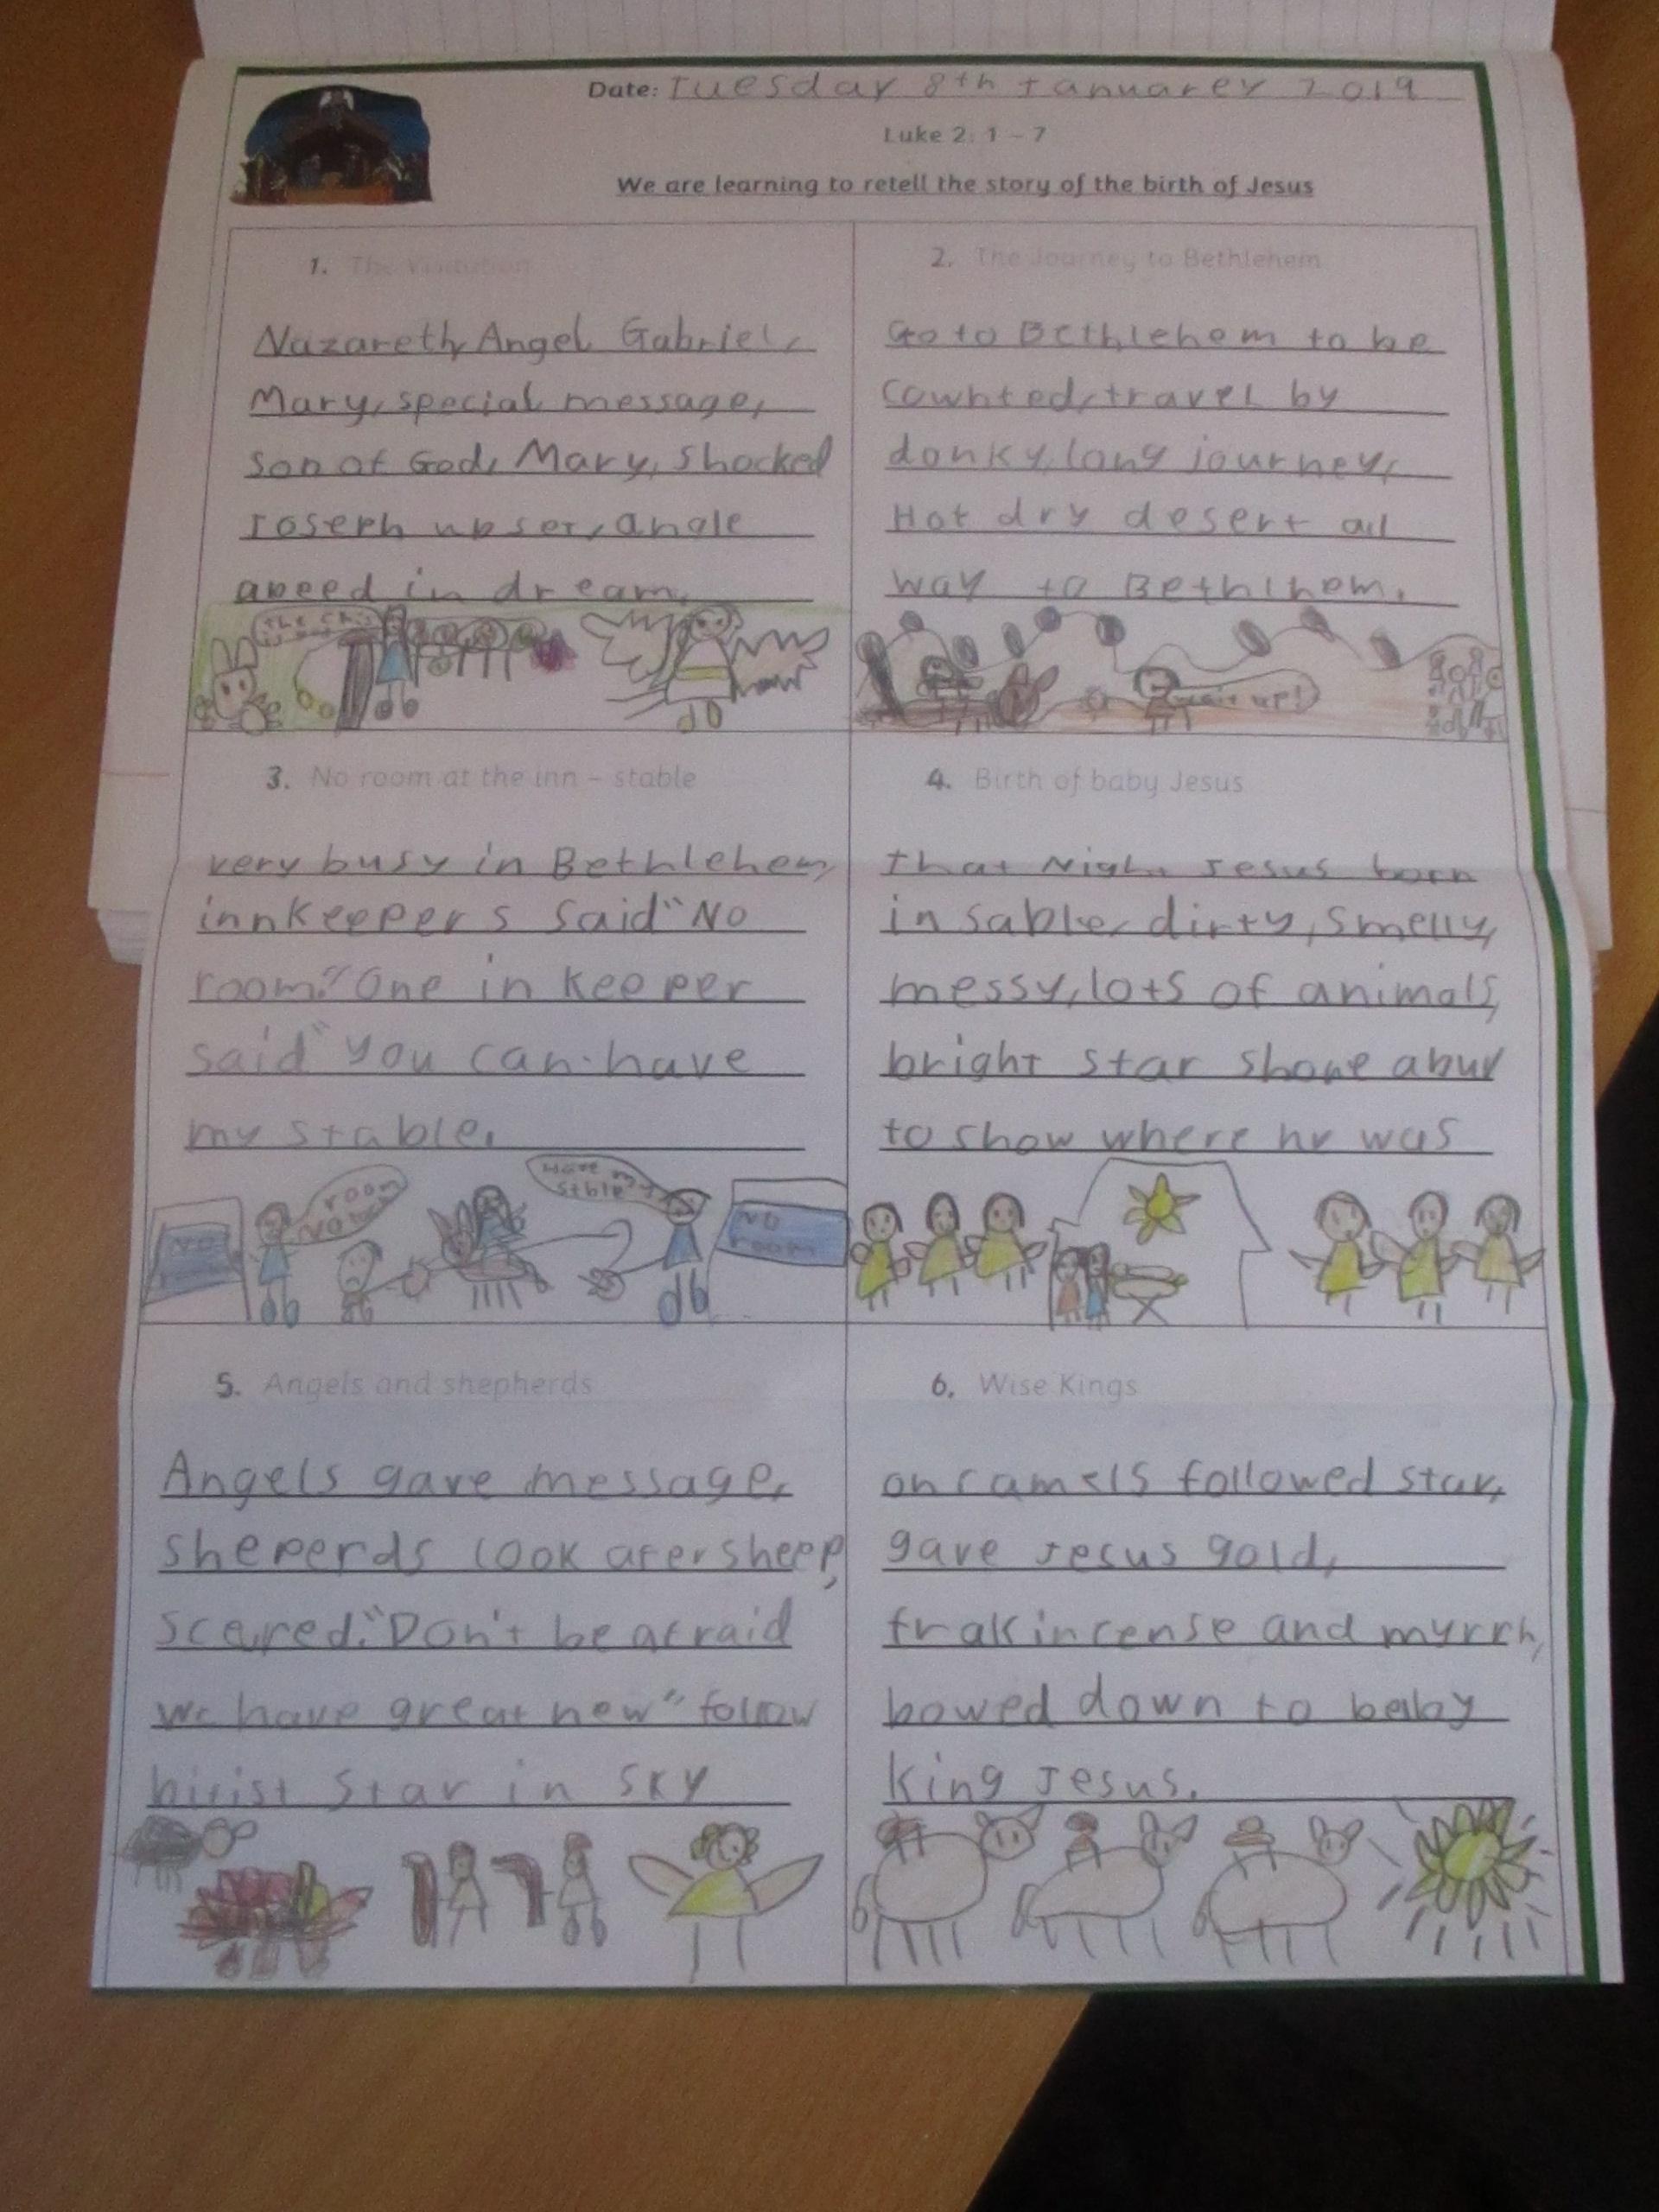 Date: Tuesday 8th Januarey 2019
Luke 2: 1 – 7
We are learning to retell the story of the birth of Jesus
1. The Visitation
Nazareth, Angel Gabriel,
Mary, special message,
son of God, Mary, Shocked
Joseph upset, angle
apeed in dream.
The
2. The Journey to Bethlehem
Go to Bethlehem to be
cownted, travel by
donky, long journey,
Hot dry desert all
way to Bethlhem.
wait up!
3. No room at the inn – stable
very busy in Bethlehem,
innkeepers said "No
room." One in keeper
said "you can have
my stable.
NO
room
Have my
stble
NO
room
4. Birth of baby Jesus
that Night Jesus born
in sable, dirty, smelly,
messy, lots of animals,
bright star shone abuv
to show where he was
5. Angels and shepherds
Angels gave message,
sheperds look afer sheep,
scared. "Don't be afraid
we have great new" follow
star in sky
6. Wise Kings
on camels followed star,
gave Jesus gold,
frakincense and myrrh,
bowed down to baby
king Jesus.